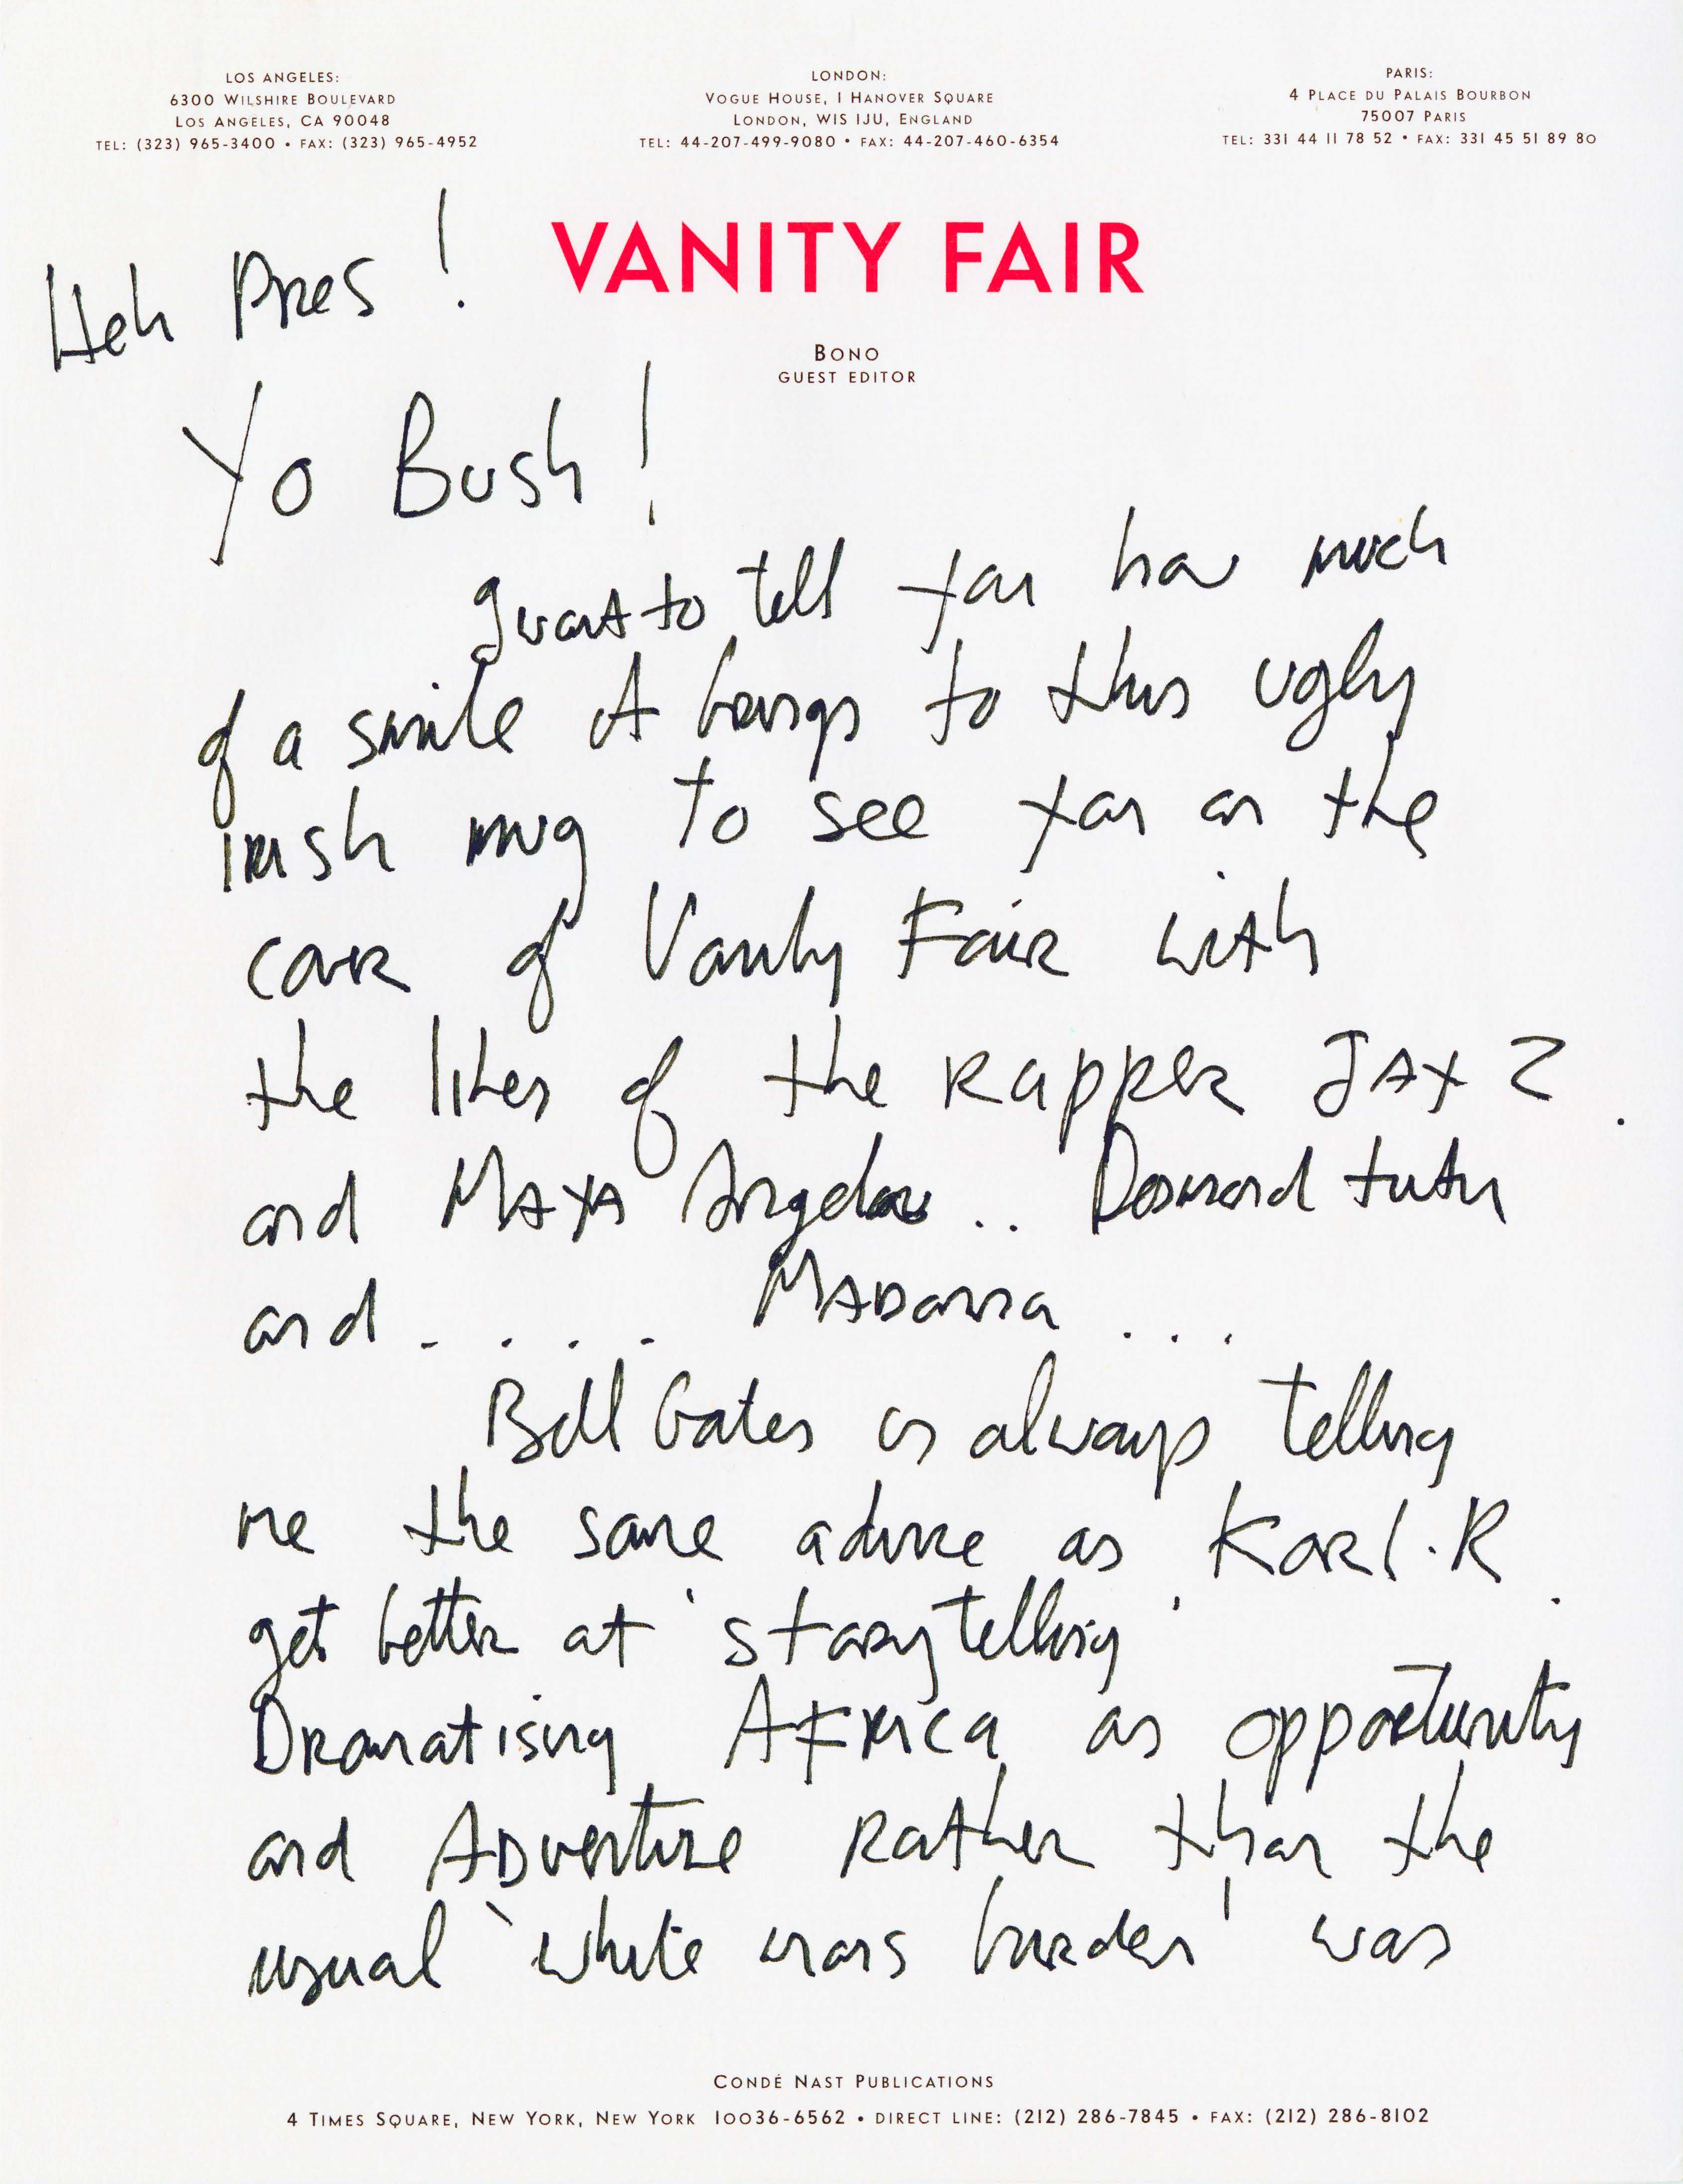 LOS ANGELES:
6300 WILSHIRE BOULEVARD
LOS ANGELES, CA 90048
TEL: (323) 965-3400 • FAX: (323) 965-4952
LONDON:
VOGUE HOUSE, 1 HANOVER SQUARE
LONDON, W1S 1JU, ENGLAND
TEL: 44-207-499-9080 • FAX: 44-207-460-6354
PARIS:
4 PLACE DU PALAIS BOURBON
75007 PARIS
TEL: 331 44 11 78 52 • FAX: 331 45 51 89 80
VANITY FAIR
BONO
GUEST EDITOR
Heh Pres!
Yo Bush!
I want to tell you how much
of a smile it brings to this ugly
Irish mug to see you on the
cover of Vanity Fair with
the likes of the rapper JAY Z.
and MAYA Angelou.. Desmond tutu
and .... MADonna ...
Bill Gates is always telling
me the same advice as Karl.R.
get better at 'storytelling'
Dramatising AFrica as opportunity
and ADventure rather than the
usual 'white mans burden' was
CONDÉ NAST PUBLICATIONS
4 TIMES SQUARE, NEW YORK, NEW YORK 10036-6562 • DIRECT LINE: (212) 286-7845 • FAX: (212) 286-8102